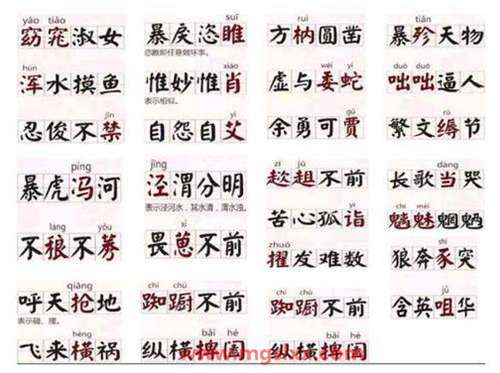 yǎo tiǎo
窈窕淑女
suī
暴戾恣睢
恣睢即任意做坏事。
ruì
方枘圆凿
tiǎn
暴殄天物
hún
浑水摸鱼
xiào
惟妙惟肖
表示相似。
wēi yí
虚与委蛇
duō duō
咄咄逼人
jīn
忍俊不禁
yì
自怨自艾
gǔ
余勇可贾
rù
繁文缛节
píng
暴虎冯河
jīng
泾渭分明
表示泾河水，其水清，渭水浊。
zī jū
趑趄不前
dàng
长歌当哭
láng yǒu
不稂不莠
xǐ
畏葸不前
yì
苦心孤诣
chī mèi
魑魅魍魉
zhuó
擢发难数
shǐ
狼奔豕突
qiāng
呼天抢地
表示碰、撞。
chí chú
踟蹰不前
chí chú
踟蹰不前
jǔ
含英咀华
hèng
飞来横祸
bǎi hé
纵横捭阖
bǎi hé
纵横捭阖